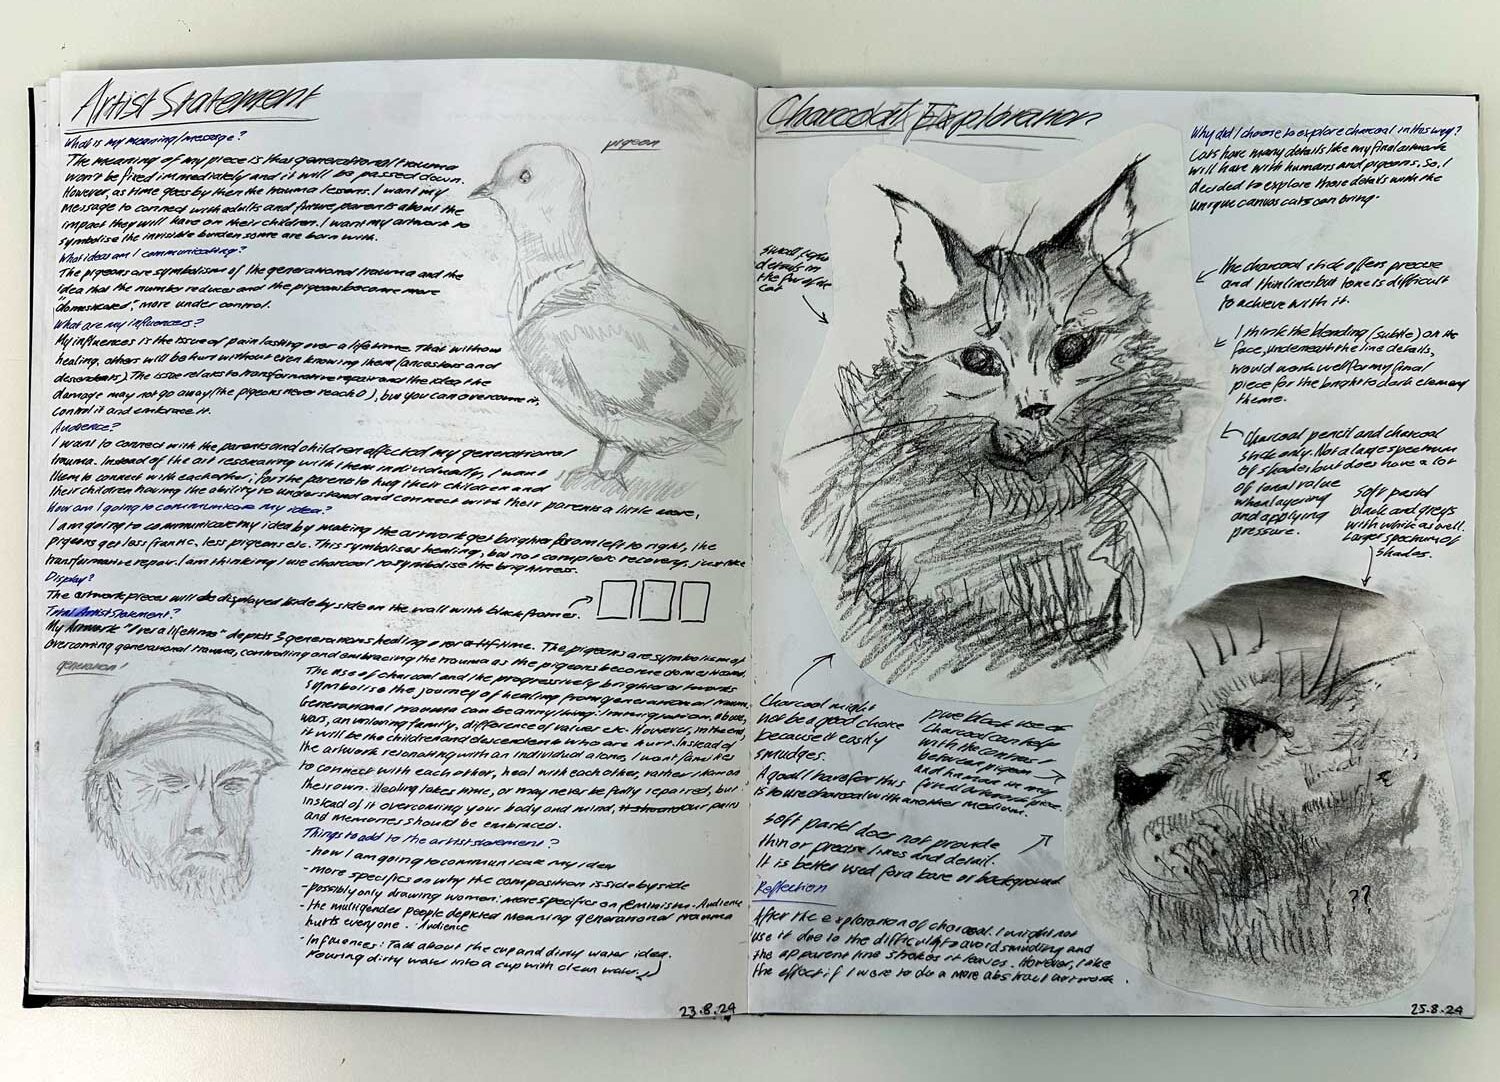 Artist Statement
What is my meaning/message?
The meaning of my piece is that generational trauma
won't be fixed immediately and it will be passed down.
However, as time goes by then the trauma lessons. I want my
message to connect with adults and future, parents about the
impact they will have on their children. I want my artwork to
symbolise the invisible burden some are born with.
What ideas am I communicating?
The pigeons are symbolism of the generational trauma and the
idea that the number reduces and the pigeons become more
"domesticated", more under control.
What are my influences?
My influences is the issue of pain lasting over a lifetime. That without
healing, others will be hurt without even knowing them (ancestors and
descendants). The issue relates to transformative repair and the idea the
damage may not go away (the pigeons never reach 0), but you can overcome it,
control it and embrace it.
Audience?
I want to connect with the parents and children affected my generational
trauma. Instead of the art resonating with them individually, I want
them to connect with each other; for the parents to hug their children and
their children having the ability to understand and connect with their parents a little more,
How am I going to communicate my idea?
I am going to communicate my idea by making the artwork get brighter from left to right, the
pigeons get less frantic, less pigeons etc. This symbolises healing, but not complete recovery, just like
transformative repair. I am thinking I use charcoal to symbolise the brightness.
Display?
The artwork pieces will be displayed side by side on the wall with black frames.
Total Artist Statement?
My Artwork "Over a lifetime" depicts 3 generations healing over a lifetime. The pigeons are symbolism of
overcoming generational trauma, controlling and embracing the trauma as the pigeons become domesticated.
The use of charcoal and the progressively brighter artworks
symbolise the journey of healing from generational trauma.
Generational trauma can be anything: Immigration, abuse,
wars, an unloving family, difference of values etc. However, in the end,
it will be the children and descendents who are hurt. Instead of
the artwork resonating with an individual alone, I want families
to connect with each other, heal with each other, rather than on
their own. Healing takes time, or may never be fully repaired, but
instead of it overcoming your body and mind, our pain
and memories should be embraced.
Things to add to the artist statement?
- how I am going to communicate my idea
- more specifics on why the composition is side by side
- possibly only drawing women: more specifics on feminism - Audience
- the multigender people depicted meaning generational trauma
hurts everyone. Audience
- Influences: Talk about the cup and dirty water idea.
Pouring dirty water into a cup with clean water.
23.8.24
pigeon
generation 1
Charcoal Exploration
Why did I choose to explore charcoal in this way?
Cats have many details like my final artwork
will have with humans and pigeons. So, I
decided to explore those details with the
unique canvas cats can bring.
small, light
details in
the fur of the
cat
the charcoal stick offers precise
and thin lines but tone is difficult
to achieve with it.
I think the blending (subtle) on the
face, underneath the line details,
would work well for my final
piece for the bright to dark element
theme.
Charcoal pencil and charcoal
stick only. Not a large spectrum
of shades but does have a lot
of tonal value
when layering
and applying
pressure.
Soft pastel
black and greys
with white as well.
Larger spectrum of
shades.
Charcoal might
not be a good choice
because it easily
smudges.
A goal I have for this
is to use charcoal with another medium.
pure black use of
charcoal can help
with the contrast
between pigeon
and human in my
final artwork piece.
Soft pastel does not provide
thin or precise lines and detail.
It is better used for a base or background
Reflection
After the exploration of charcoal. I might not
use it due to the difficulty to avoid smudging and
the apparent line strokes it leaves. However, I like
the effect if I were to do a more abstract artwork.
??
25.8.24